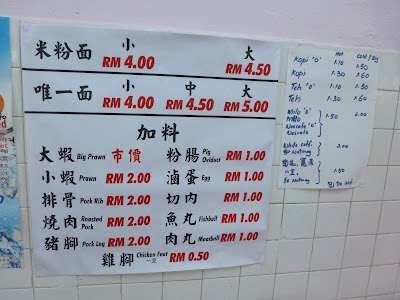 米粉面 小 大
RM 4.00 RM 4.50
唯一面 小 中 大
RM 4.00 RM 4.50 RM 5.00
加料
大蝦 Big Prawn 市價
小蝦 Prawn RM 2.00
排骨 Pork Rib RM 2.00
燒肉 Roasted Pork RM 2.00
豬腳 Pork Leg RM 2.00
粉腸 Pig Oviduct RM 1.00
滷蛋 Egg RM 1.00
切肉 RM 1.00
魚丸 Fishball RM 1.00
肉丸 Meatball RM 1.00
雞腳 Chicken Feet 一支 RM 0.50
Hot Cold/Big
Kopi 'O' 1.10 1.50
Kopi 1.30 1.60
Teh 'O' 1.10 1.50
Teh 1.30 1.60
Milo 'O'
Nescafe 'O'
Nescafe
1.50 2.00
White Coff.
2.00
Nutmeg
1.50